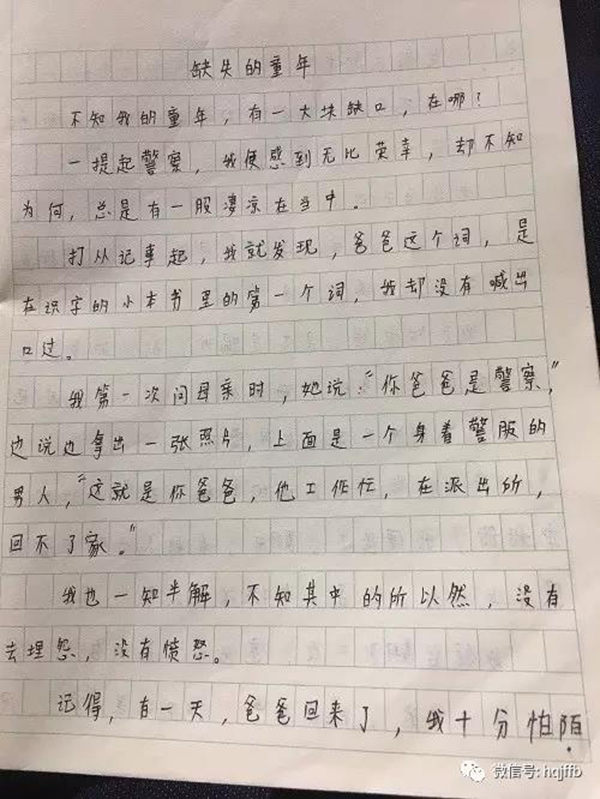 缺失的童年
不知我的童年，有一大块缺口，在哪？
一提起警察，我便感到无比荣幸，却不知
为何，总是有一股凄凉在当中。
打从记事起，我就发现，爸爸这个词，是
在识字的小本书里的第一个词，我却没有喊出
口过。
我第一次问母亲时，她说：“你爸爸是警察，”
边说边拿出一张照片，上面是一个身着警服的
男人，“这就是你爸爸，他工作忙，在派出所，
回不了家。”
我也一知半解，不知其中的所以然，没有
去埋怨，没有愤怒。
记得，有一天，爸爸回来了，我十分怕陌
微信号: hqjffb